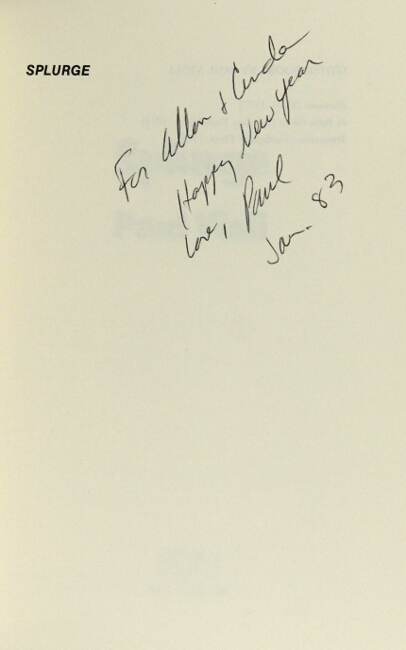 SPLURGE
For Allan & Linda
Happy New Year
Love, Paul
Jan. 83